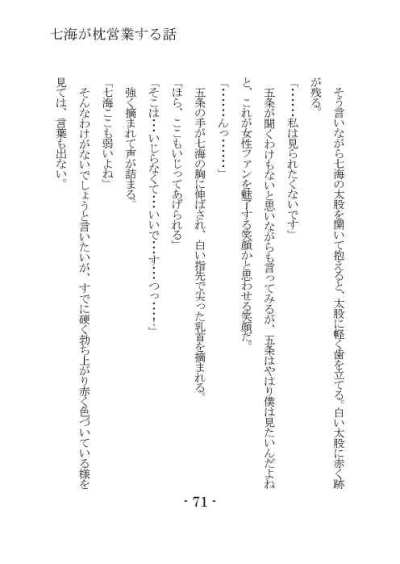 七海が枕営業する話
　そう言いながら七海の太股を開いて抱えると、太股に軽く歯を立てる。白い太股に赤く跡
が残る。
「・・・・・私は見られたくないです」
　五条が聞くわけもないと思いながらも言ってみるが、五条はやはり僕は見たいんだよね
と、これが女性ファンを魅了する笑顔かと思わせる笑顔だ。
「・・・・・・んっ・・・・・」
　五条の手が七海の胸に伸ばされ、白い指先で尖った乳首を摘まれる。
「ほら、ここもいじってあげられる」
「そこは・・・いじらなくて・・・いいで・・・す・・・つっ・・・・！」
　強く摘まれて声が詰まる。
「七海ここも弱いよね」
　そんなわけがないでしょうと言いたいが、すでに硬く勃ち上がり赤く色づいている様を
見ては、言葉も出ない。
- 71 -